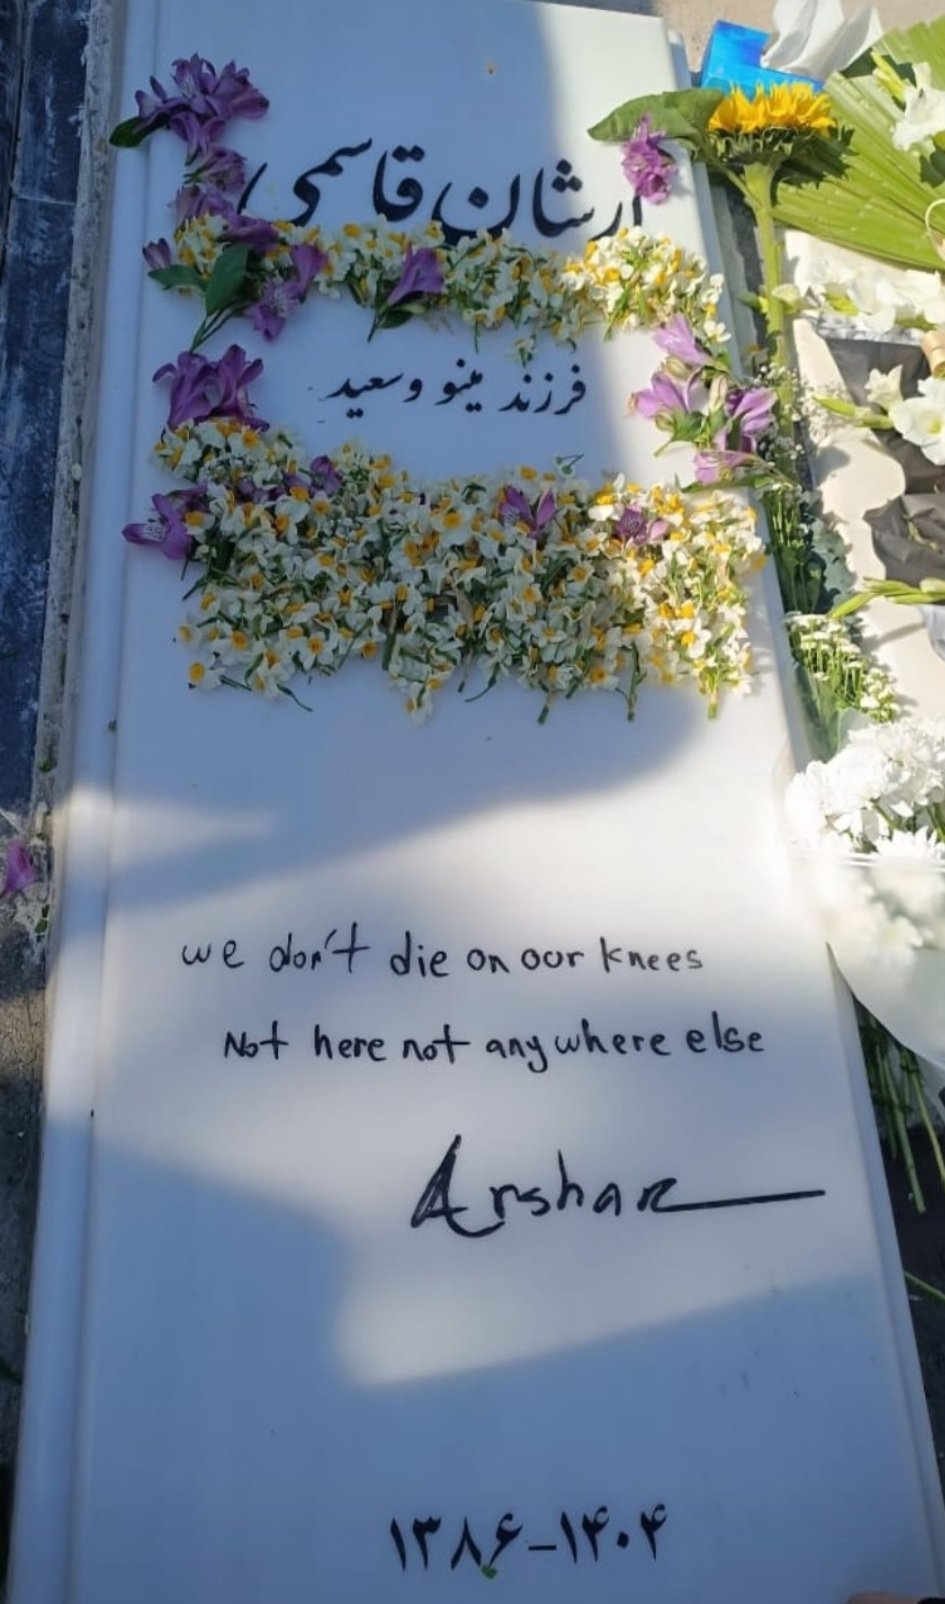 ارشان قاسمی
فرزند مینو و سعید
we don't die on our knees
Not here not anywhere else
Arshan
۱۳۸۶-۱۴۰۴